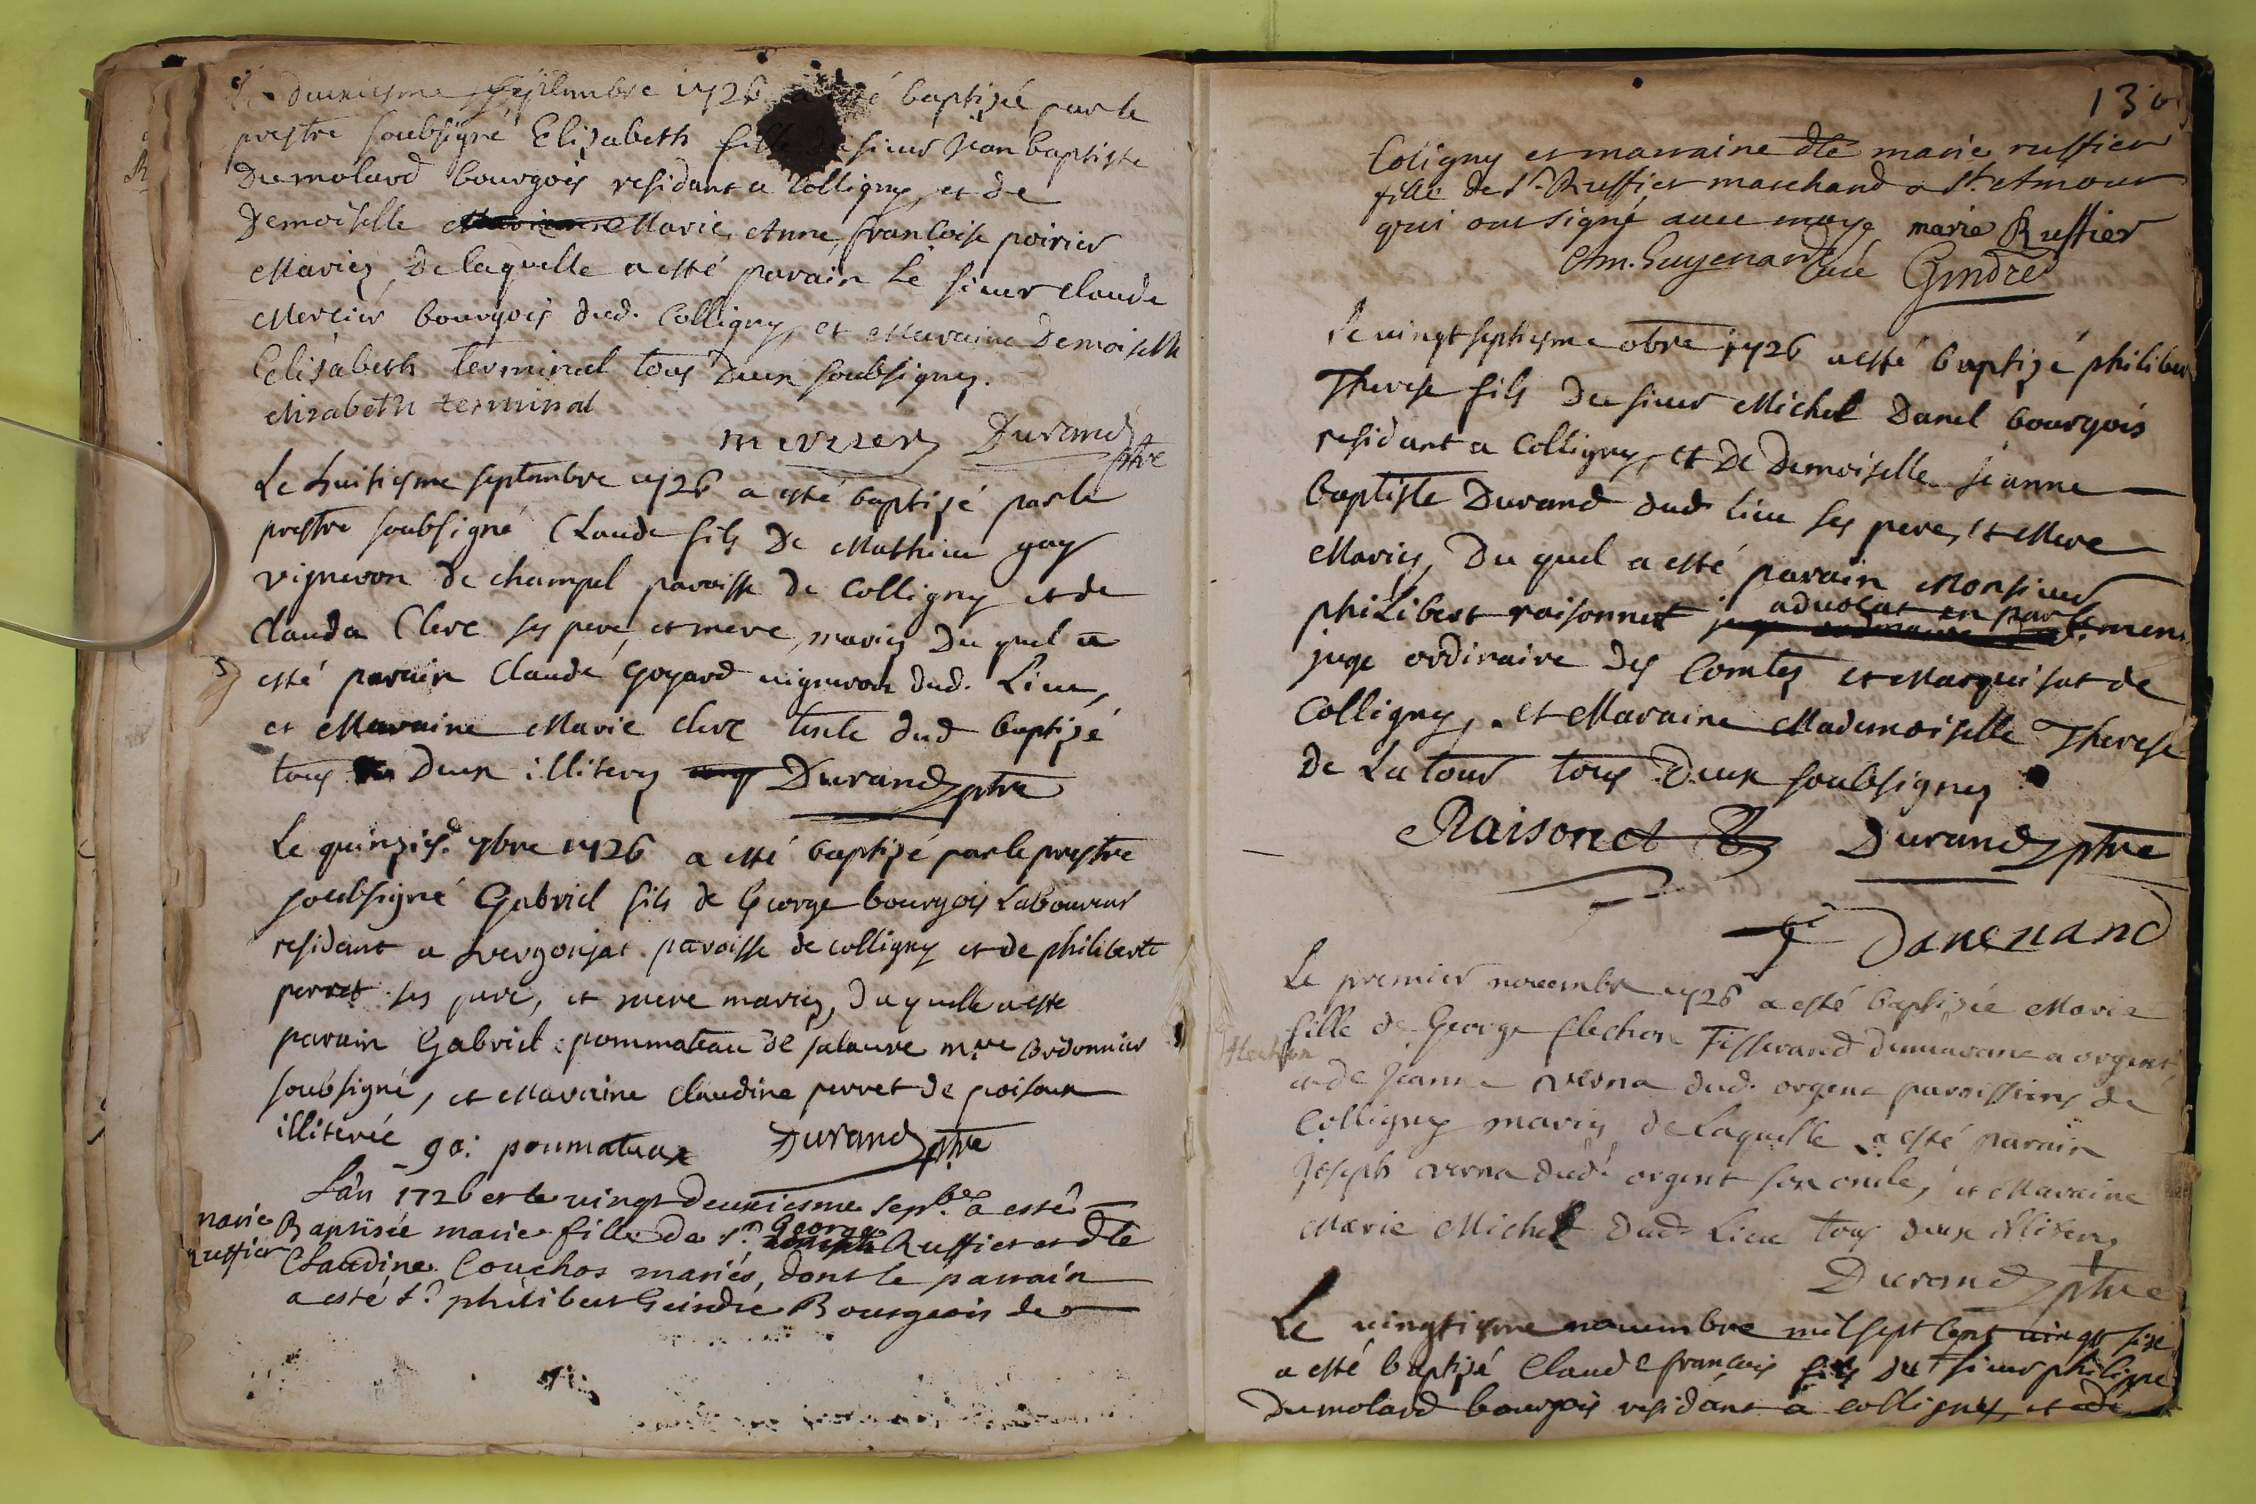 Le deuxiesme septembre 1726 a esté baptizé par le
prestre soubsigné Elizabeth fille du sieur Jean baptiste
Dumolard bourgois residant a Colligny, et de
Demoiselle Marie Anne francoise poirier
Maries, De laquelle a esté parain Le sieur claude
Mercier bourgois dud. Colligny, et Maraine Demoiselle
Elisabeth terminal tous Deux soubsignes.
elizabeth terminal
mercier Durand ptre
Le huitiesme septembre 1726 a esté baptizé par le
prestre soubsigné Claude fils De Mathieu gay
vigneron de champel paroisse de Colligny et de
Clauda Clerc ses pere, et mere, maries Du quel a
esté parain Claude Goyard vigneron dud. Lieu,
et Maraine Marie clerc tante dud baptizé
tous Deux illiteres Durand ptre
Le quinzie. 7bre 1726 a esté baptizé par le prestre
soubsigné Gabriel fils de George bourgois Laboureur
residant a vergonjat paroisse de colligny et de philiberte
perret ses pere, et mere maries, duquelle a este
parain Gabriel pommateau de salavre mre Cordonnier
soubsigné, et Maraine Claudine perret de poisoux
illiterée ga: poumateau Durand ptre
Marie Ruffier
L'an 1726 et le vingt deuxiesme sepbre a esté
Baptisée marie fille de Sr. George Ruffier et dlle
Claudine Couchos mariés, dont le parrain
a esté sr philibert Geindre Bourgeois de
130
Coligny et marraine dlle marie ruffier
fille de Sr. Ruffier marchand a St. Amour
qui ont signé avec moy marie Ruffier
Am. Guyenard Curé Gindre
Le vingt septiesme obre 1726 a esté baptizé philibert
Therese fils Du sieur Michel Danel bourgois
residant a Colligny, et De Demoiselle Jeanne
baptiste Durand dud lieu ses pere, et Mere
Maries, Du quel a esté parain Monsieur
philibert raisonnet advocat en parlement
juge ordinaire des Comtes et Marquisat de
Colligny, et Maraine Mademoiselle Therese
De La tour tous Deux soubsignes
Raisonet Durand ptre
Le premier novembre 1726 a esté baptizée Marie
fille de George flechon Tisserand demeurant a orgent,
et de Jeanne verna dud. orgent paroissiens de
Colligny maries de Laquelle a esté parain
Joseph verna dud. orgent son oncle, et Maraine
Marie Michel dud Lieu tous deux illiteres
Durand ptre
Le vingtiesme novembre mil sept Cent vingt sixe
a esté baptizé Claude francois fils Du sieur philippe
Dumolard bourgois residant a colligny, et de